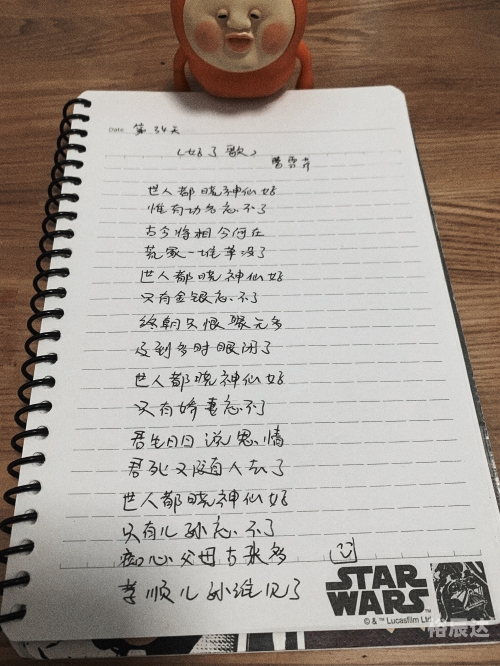 Date 第34天
《好了歌》
曹雪芹
世人都晓神仙好
惟有功名忘不了
古今将相今何在
荒冢一堆草没了
世人都晓神仙好
只有金银忘不了
终朝只恨聚无多
及到多时眼闭了
世人都晓神仙好
只有娇妻忘不了
君生日日说恩情
君死又随人去了
世人都晓神仙好
只有儿孙忘不了
痴心父母古来多
孝顺儿孙谁见了
STAR
WARS
© & ™ Lucasfilm Ltd
裕辰达